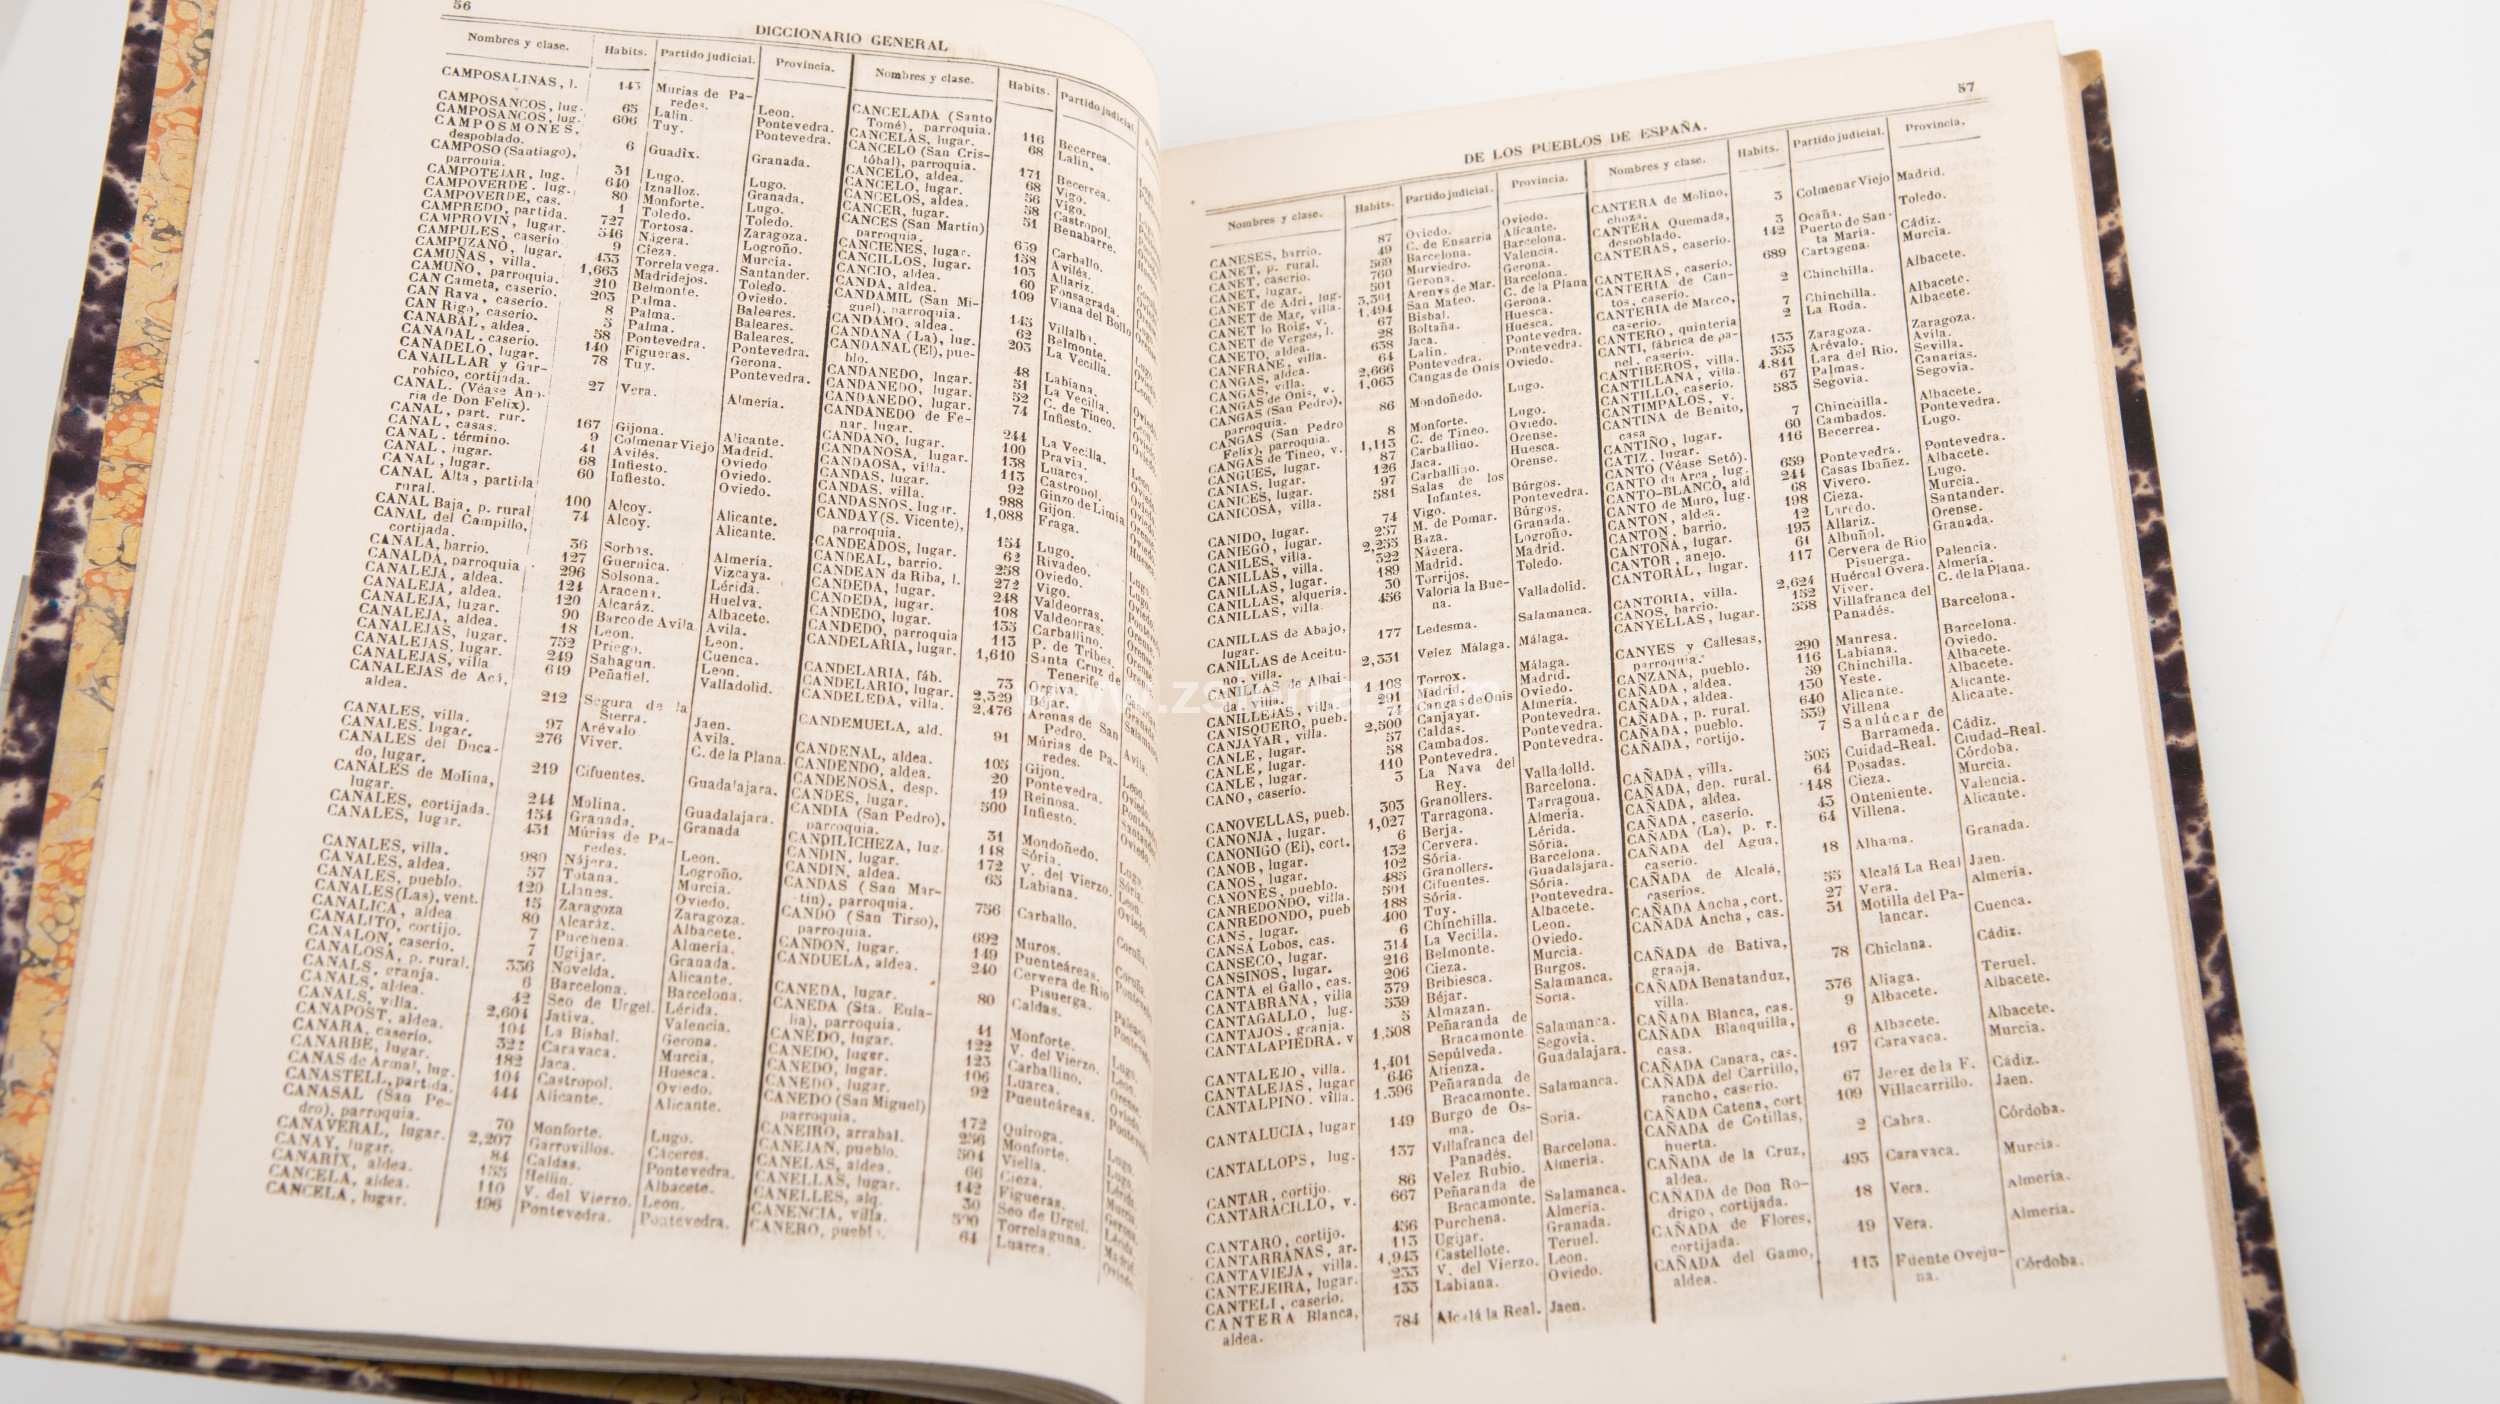 56
DICCIONARIO GENERAL
Nombres y clase. Habits. Partido judicial. Provincia.
CAMPOSALINAS, l. 143 Murias de Pa-
redes. Leon.
CAMPOSANCOS, lug. 65 Lalin. Pontevedra.
CAMPOSANCOS, lug. 606 Tuy. Pontevedra.
CAMPOSMONES,
despoblado. 6 Guadix. Granada.
CAMPOSO (Santiago),
parroquia. 31 Lugo. Lugo.
CAMPOTEJAR, lug. 640 Iznalloz. Granada.
CAMPOVERDE. lug. 80 Monforte. Lugo.
CAMPOVERDE, cas. 1 Toledo. Toledo.
CAMPREDO, partida. 727 Tortosa. Zaragoza.
CAMPROVIN, lugar. 546 Nágera. Logroño.
CAMPULES, caserío. 9 Cieza. Murcia.
CAMPUZANO, lugar. 433 Torrelavega. Santander.
CAMUÑAS, villa. 1,663 Madridejos. Toledo.
CAMUÑO, parroquia. 210 Belmonte. Oviedo.
CAN Cameta, caserío. 203 Palma. Baleares.
CAN Rava, caserío. 8 Palma. Baleares.
CAN Rigo, caserío. 3 Palma. Baleares.
CANABAL, aldea. 58 Pontevedra. Pontevedra.
CANADAL, caserío. 140 Figueras. Gerona.
CANADELO, lugar. 78 Tuy. Pontevedra.
CANAILLAR y Gar-
robico, cortijada. 27 Vera. Almería.
CANAL. (Véase Ano-
ria de Don Felix).
CANAL, part. rur. 167 Gijona. Alicante.
CANAL, casas. 9 Colmenar Viejo Madrid.
CANAL. término. 41 Avilés. Oviedo.
CANAL, lugar. 68 Infiesto. Oviedo.
CANAL, lugar. 60 Infiesto. Oviedo.
CANAL Alta, partida
rural. 100 Alcoy. Alicante.
CANAL Baja, p. rural 74 Alcoy. Alicante.
CANAL del Campillo,
cortijada. 36 Sorbas. Almeria.
CANALA, barrio. 127 Guernica. Vizcaya.
CANALDA, parroquia 296 Solsona. Lérida.
CANALEJA, aldea. 124 Aracena. Huelva.
CANALEJA, aldea. 120 Alcaráz. Albacete.
CANALEJA, lugar. 90 Barco de Avila Avila.
CANALEJA, aldea. 18 Leon. Leon.
CANALEJAS, lugar. 752 Priego. Cuenca.
CANALEJAS, lugar. 249 Sahagun. Leon.
CANALEJAS, villa 649 Peñafiel. Valladolid.
CANALEJAS de Acá,
aldea. 212 Segura de la
Sierra. Jaen.
CANALES, villa. 97 Arévalo Avila.
CANALES. lugar. 276 Viver. C. de la Plana.
CANALES del Duca-
do, lugar. 219 Cifuentes. Guadalajara.
CANALES de Molina,
lugar. 244 Molina. Guadalajara.
CANALES, cortijada. 154 Granada. Granada
CANALES, lugar. 431 Múrias de Pa-
redes. Leon.
CANALES, villa. 980 Nájera. Logroño.
CANALES. aldea. 57 Totana. Murcia.
CANALES, pueblo. 120 Llanes. Oviedo.
CANALES(Las), vent. 15 Zaragoza Zaragoza.
CANALICA, aldea 80 Alcaráz. Albacete.
CANALITO, cortijo. 7 Purchena. Almería.
CANALON, caserío. 7 Ugijar. Granada.
CANALOSA, p. rural. 336 Novelda. Alicante.
CANALS, granja. 6 Barcelona. Barcelona.
CANALS, aldea. 42 Seo de Urgel. Lérida.
CANALS, villa. 2,604 Jativa. Valencia.
CANAPOST. aldea. 104 La Bisbal. Gerona.
CANARA. caserío. 322 Caravaca. Murcia.
CANARBE, lugar. 182 Jaca. Huesca.
CANAS de Armal, lug. 104 Castropol. Oviedo.
CANASTELL, partida. 444 Alicante. Alicante.
CANASAL (San Pe-
dro), parroquia. 70 Monforte. Lugo.
CANAVERAL, lugar. 2,207 Garrovillos. Cáceres.
CANAY, lugar. 84 Caldas. Pontevedra.
CANARIX, aldea. 155 Hellin. Albacete.
CANCELA, aldea. 110 V. del Vierzo. Leon.
CANCELA, lugar. 196 Pontevedra. Pontevedra.
Nombres y clase. Habits. Partido judicial.
CANCELADA (Santo
Tomé), parroquia. 116 Becerrea.
CANCELAS, lugar. 68 Lalin.
CANCELO (San Cris-
tóbal), parroquia. 171 Becerrea.
CANCELO, aldea. 68 Vigo.
CANCELO, lugar. 56 Vigo.
CANCELOS, aldea. 58 Castropol.
CANCER, lugar. 51 Benabarre.
CANCES (San Martin)
parroquia. 659 Carballo.
CANCIENES, lugar. 158 Avilés.
CANCILLOS, lugar. 103 Allariz.
CANCIO, aldea. 60 Fonsagrada.
CANDA, aldea. 109 Viana del Bollo
CANDAMIL (San Mi-
guel), parroquia. 143 Villalba.
CANDAMO. aldea. 62 Belmonte.
CANDANA (La), lug. 203 La Vecilla.
CANDANAL (El), pue-
blo. 48 Labiana.
CANDANEDO, lugar. 51 La Vecilla.
CANDANEDO, lugar. 52 C. de Tineo.
CANDANEDO, lugar. 74 Infiesto.
CANDANEDO de Fe-
nar. lugar. 244 La Vecilla.
CANDANO, lugar. 100 Pravia.
CANDANOSA, lugar. 138 Luarca.
CANDAOSA, villa. 113 Castropol.
CANDAS, lugar. 92 Ginzo de Limia
CANDAS. villa. 988 Gijon.
CANDASNOS. lugar. 1,088 Fraga.
CANDAY (S. Vicente),
parroquia. 154 Lugo.
CANDEADOS, lugar. 62 Rivadeo.
CANDEAL, barrio. 258 Oviedo.
CANDEAN da Riba, l. 272 Vigo.
CANDEDA, lugar. 248 Valdeorras.
CANDEDA, lugar. 108 Valdeorras.
CANDEDO, lugar. 133 Carballino.
CANDEDO, parroquia 113 P. de Tribes.
CANDELARIA, lugar. 1,610 Santa Cruz de
Tenerife.
CANDELARIA, fáb. 73 Orgiva.
CANDELARIO, lugar. 2,329 Béjar.
CANDELEDA, villa. 2,476 Arenas de San
Pedro.
CANDEMUELA, ald. 91 Múrias de Pa-
redes.
CANDENAL, aldea. 105 Gijon.
CANDENDO, aldea. 20 Pontevedra.
CANDENOSA, desp. 19 Reinosa.
CANDES, lugar. 500 Infiesto.
CANDIA (San Pedro),
parroquia. 31 Mondoñedo.
CANDILICHEZA, lug. 148 Sória.
CANDIN, lugar. 172 V. del Vierzo.
CANDIN, aldea. 65 Labiana.
CANDAS (San Mar-
tin), parroquia. 756 Carballo.
CANDO (San Tirso),
parroquia. 692 Muros.
CANDON, lugar. 149 Puenteáreas.
CANDUELA, aldea. 240 Cervera de Rio
Pisuerga.
CANEDA, lugar. 80 Caldas.
CANEDA (Sta. Eula-
lia), parroquia. 41 Monforte.
CANEDO, lugar. 122 V. del Vierzo.
CANEDO, lugar. 123 Carballino.
CANEDO, lugar. 106 Luarca.
CANEDO. lugar. 92 Puenteáreas.
CANEDO (San Miguel)
parroquia. 172 Quiroga.
CANEIRO, arrabal. 256 Monforte.
CANEJAN, pueblo. 504 Viella.
CANELAS, aldea. 66 Cieza.
CANELLAS, lugar. 142 Figueras.
CANELLES, alq. 30 Seo de Urgel.
CANENCIA, villa. 590 Torrelaguna.
CANERO, pueblo. 64 Luarca.
57
DE LOS PUEBLOS DE ESPAÑA.
Nombres y clase. Habits. Partido judicial. Provincia.
CANESES, barrio. 87 Oviedo. Oviedo.
CANET, p. rural. 49 C. de Ensarria Alicante.
CANET, caserío. 569 Barcelona. Barcelona.
CANET, lugar. 760 Murviedro. Valencia.
CANET de Adri, lug. 501 Gerona. Gerona.
CANET de Mar, villa. 3,301 Arenys de Mar. Barcelona.
CANET lo Roig, v. 1,494 San Mateo. C. de la Plana
CANET de Verges, l. 67 Bisbal. Gerona.
CANETO, aldea. 28 Boltaña. Huesca.
CANFRANE, villa. 638 Jaca. Huesca.
CANGAS, aldea. 64 Lalin. Pontevedra.
CANGAS, villa. 2,666 Pontevedra. Pontevedra.
CANGAS de Onis, v. 1,063 Cangas de Onis Oviedo.
CANGAS (San Pedro),
parroquia. 86 Mondoñedo. Lugo.
CANGAS (San Pedro
Felix), parroquia. 8 Monforte. Lugo.
CANGAS de Tineo, v. 1,113 C. de Tineo. Oviedo.
CANGUES, lugar. 87 Carballino. Orense.
CANIAS, lugar. 126 Jaca. Huesca.
CANICES, lugar. 97 Carballino. Orense.
CANICOSA, villa. 581 Salas de los
Infantes. Búrgos.
CANIDO, lugar. 74 Vigo. Pontevedra.
CANIEGO, lugar. 257 M. de Pomar. Búrgos.
CANILES, villa. 2,255 Baza. Granada.
CANILLAS, villa. 322 Nágera. Logroño.
CANILLAS, lugar. 189 Madrid. Madrid.
CANILLAS, alquería. 30 Torrijos. Toledo.
CANILLAS, villa. 456 Valoria la Bue-
na. Valladolid.
CANILLAS de Abajo,
lugar. 177 Ledesma. Salamanca.
CANILLAS de Aceitu-
no, villa. 2,331 Velez Málaga. Málaga.
CANILLAS de Albai-
da, villa. 1.108 Torrox. Málaga.
CANILLEJAS, villa. 291 Madrid. Madrid.
CANISQUERO, pueb. 74 Cangas de Onis Oviedo.
CANJAYAR, villa. 2,500 Canjayar. Almería.
CANLE, lugar. 57 Caldas. Pontevedra.
CANLE, lugar. 58 Cambados. Pontevedra.
CANLE, lugar. 110 Pontevedra. Pontevedra.
CANO, caserío. 3 La Nava del
Rey. Valladolid.
CANOVELLAS, pueb. 303 Granollers. Barcelona.
CANONJA, lugar. 1,027 Tarragona. Tarragona.
CANONIGO (El), cort. 6 Berja. Almería.
CANOB, lugar. 132 Cervera. Lérida.
CANOS, lugar. 102 Sória. Sória.
CANONES, pueblo. 485 Granollers. Barcelona.
CANREDONDO, villa. 501 Cifuentes. Guadalajara.
CANREDONDO, pueb 188 Sória. Sória.
CANS, lugar. 400 Tuy. Pontevedra.
CANSA Lobos, cas. 6 Chinchilla. Albacete.
CANSECO, lugar. 314 La Vecilla. Leon.
CANSINOS, lugar. 216 Belmonte. Oviedo.
CANTA el Gallo, cas. 206 Cieza. Murcia.
CANTABRANA, villa 379 Bribiesca. Burgos.
CANTAGALLO, lug. 539 Béjar. Salamanca.
CANTAJOS, granja. 5 Almazan. Soria.
CANTALAPIEDRA. v 1,508 Peñaranda de
Bracamonte Salamanca.
CANTALEJO, villa. 1,401 Sepúlveda. Segovia.
CANTALEJAS, lugar 646 Atienza. Guadalajara.
CANTALPINO. villa. 1.396 Peñaranda de
Bracamonte. Salamanca.
CANTALUCIA, lugar 149 Burgo de Os-
ma. Soria.
CANTALLOPS, lug. 137 Villafranca del
Panadés. Barcelona.
CANTAR, cortijo. 86 Velez Rubio. Almería.
CANTARACILLO, v. 667 Peñaranda de
Bracamonte. Salamanca.
CANTARO, cortijo. 456 Purchena. Almería.
CANTARRANAS, ar. 113 Ugijar. Granada.
CANTAVIEJA, villa. 1,943 Castellote. Teruel.
CANTEJEIRA, lugar. 233 V. del Vierzo. Leon.
CANTELI, caserío. 133 Labiana. Oviedo.
CANTERA Blanca,
aldea. 784 Alcalá la Real. Jaen.
Nombres y clase. Habits. Partido judicial. Provincia.
CANTERA de Molino,
choza. 3 Colmenar Viejo Madrid.
CANTERA Quemada,
despoblado. 3 Ocaña. Toledo.
CANTERAS, caserío. 142 Puerto de San-
ta María. Cádiz.
CANTERAS, caserío. 689 Cartagena. Murcia.
CANTERIA de Can-
tos, caserío. 2 Chinchilla. Albacete.
CANTERIA de Marco,
caserio. 7 Chinchilla. Albacete.
CANTERO, quinteria 2 La Roda. Albacete.
CANTI, fábrica de pa-
pel. caserio. 133 Zaragoza. Zaragoza.
CANTIBEROS, villa. 353 Arévalo. Avila.
CANTILLANA, villa. 4.841 Lara del Rio. Sevilla.
CANTILLO, caserío. 67 Palmas. Canarias.
CANTIMPALOS, v. 583 Segovia. Segovia.
CANTINA de Benito,
casa 7 Chinchilla. Albacete.
CANTIÑO, lugar. 60 Cambados. Pontevedra.
CATIZ. lugar. 116 Becerrea. Lugo.
CANTO (Véase Setó).
CANTO da Arca, lug. 659 Pontevedra. Pontevedra.
CANTO-BLANCO, ald 244 Casas Ibañez. Albacete.
CANTO de Muro, lug. 68 Vivero. Lugo.
CANTON, aldea. 198 Cieza. Murcia.
CANTON, barrio. 12 Laredo. Santander.
CANTOÑA, lugar. 193 Allariz. Orense.
CANTOR, anejo. 61 Albuñol. Granada.
CANTORAL, lugar. 117 Cervera de Rio
Pisuerga. Palencia.
CANTORIA, villa. 2,624 Huércal Overa. Almería.
CANOS, barrio. 152 Viver. C. de la Plana.
CANYELLAS, lugar. 558 Villafranca del
Panadés. Barcelona.
CANYES y Callesas,
parroquia. 290 Manresa. Barcelona.
CANZANA, pueblo. 116 Labiana. Oviedo.
CAÑADA, aldea. 59 Chinchilla. Albacete.
CAÑADA, aldea. 130 Yeste. Albacete.
CAÑADA, p. rural. 640 Alicante. Alicante.
CAÑADA, pueblo. 539 Villena. Alicante.
CAÑADA, cortijo. 7 Sanlúcar de
Barrameda. Cádiz.
CAÑADA, villa. 505 Cuidad-Real. Ciudad-Real.
CAÑADA, dep. rural. 64 Posadas. Córdoba.
CAÑADA, aldea. 148 Cieza. Murcia.
CAÑADA, caserío. 43 Onteniente. Valencia.
CAÑADA (La), p. r. 64 Villena. Alicante.
CAÑADA del Agua,
caserio. 18 Alhama. Granada.
CAÑADA de Alcalá,
caserios. 55 Alcalá La Real Jaen.
CAÑADA Ancha, cort. 27 Vera. Almería.
CAÑADA Ancha, cas. 31 Motilla del Pa-
lancar. Cuenca.
CAÑADA de Bativa,
granja. 78 Chiclana. Cádiz.
CAÑADA Benatanduz,
villa. 376 Aliaga. Teruel.
CAÑADA Blanca, cas. 9 Albacete. Albacete.
CAÑADA Blanquilla,
casa. 6 Albacete. Albacete.
CAÑADA Canara, cas. 197 Caravaca. Murcia.
CAÑADA del Carrillo,
rancho, caserio. 67 Jerez de la F. Cádiz.
CAÑADA Catena, cort 109 Villacarrillo. Jaen.
CAÑADA de Cotillas,
huerta. 2 Cabra. Córdoba.
CAÑADA de la Cruz,
aldea. 493 Caravaca. Murcia.
CAÑADA de Don Ro-
drigo, cortijada. 18 Vera. Almería.
CAÑADA de Flores,
cortijada. 19 Vera. Almería.
CAÑADA del Gamo,
aldea. 113 Fuente Oveju-
na. Córdoba.